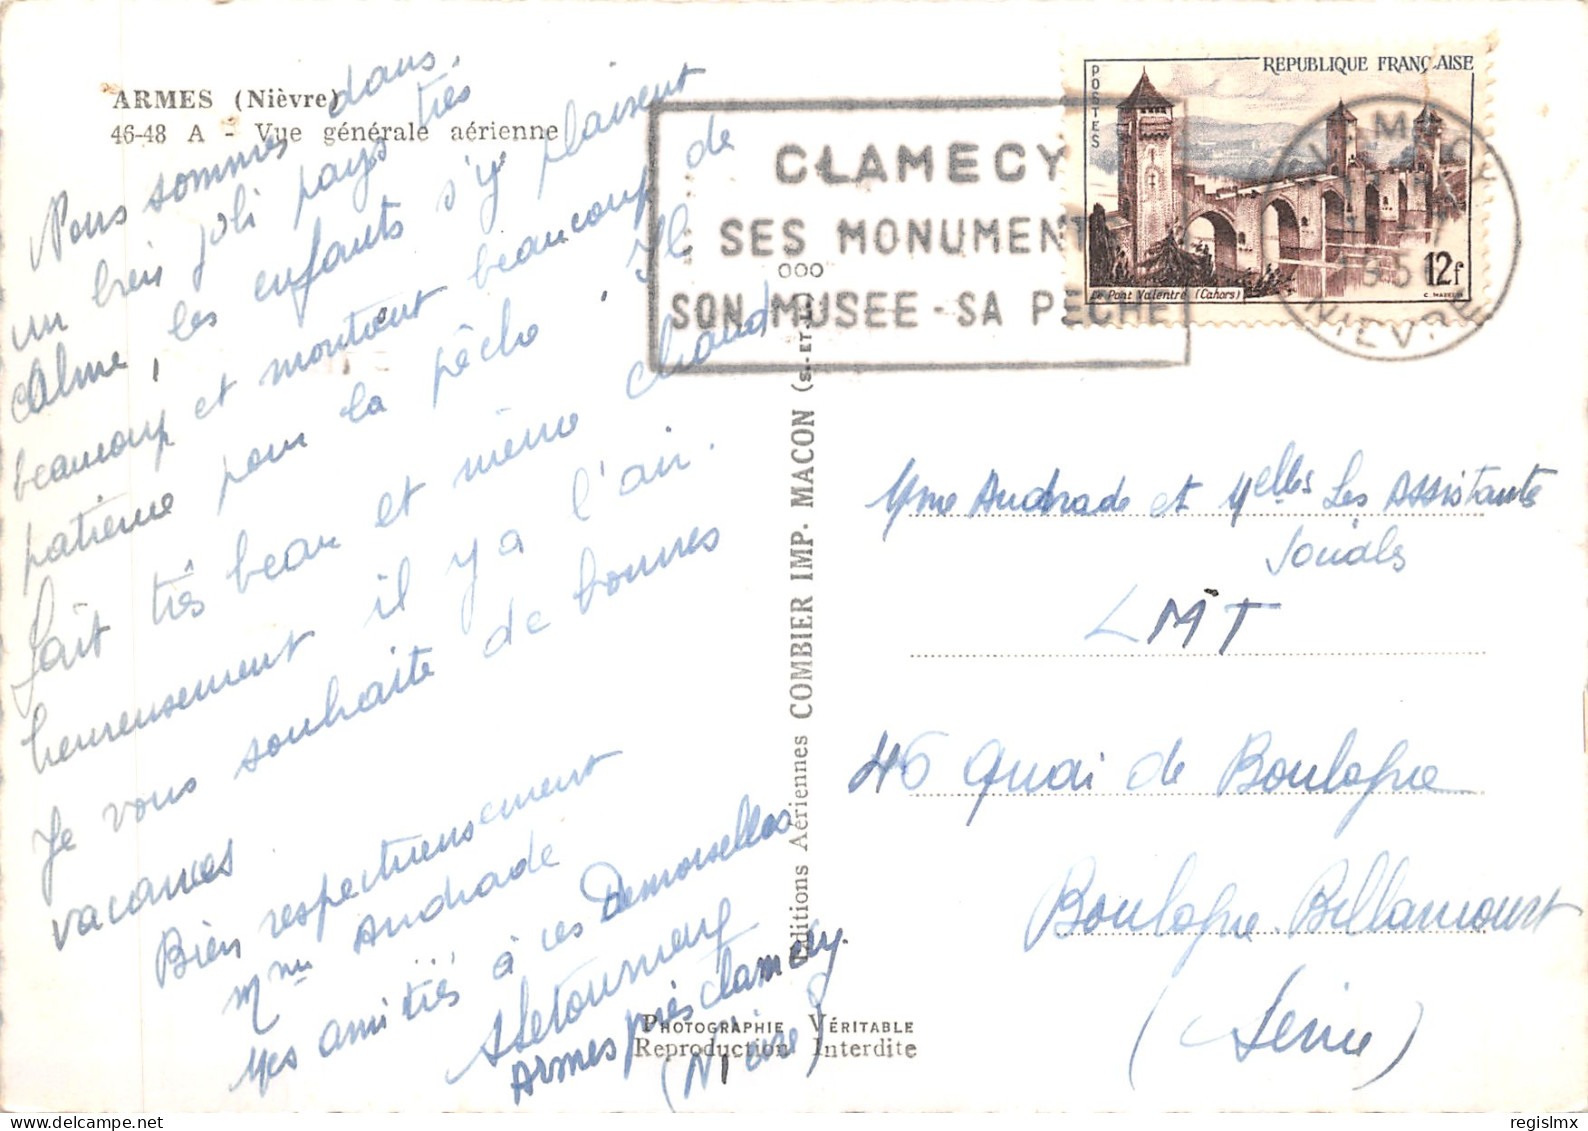 ARMES (Nièvre)
46-48 A - Vue générale aérienne
Nous sommes dans
un bien joli pays très
calme, les enfants s'y plaisent
beaucoup et montrent beaucoup de
patience pour la pêche. Il
fait très beau et même chaud
heureusement il y a l'air.
Je vous souhaite de bonnes
vacances
Bien respectueusement
Mme Andrade
Mes amitiés à ces Demoiselles
Letourneau
Armes près Clamecy.
(Nièvre)
Editions Aériennes COMBIER IMP. MACON (S.-ET-L.)
PHOTOGRAPHIE VÉRITABLE
Reproduction Interdite
CLAMECY
SES MONUMENTS
SON MUSEE - SA PECHE
POSTES
REPUBLIQUE FRANÇAISE
Le Pont Valentré (Cahors)
12f
CLAMECY
NIEVRE
Mme Andrade et Melles Les Assistantes
Sociales
LMT
46 Quai de Boulogne
Boulogne Billancourt
(Seine)
regislmx
delcampe.net